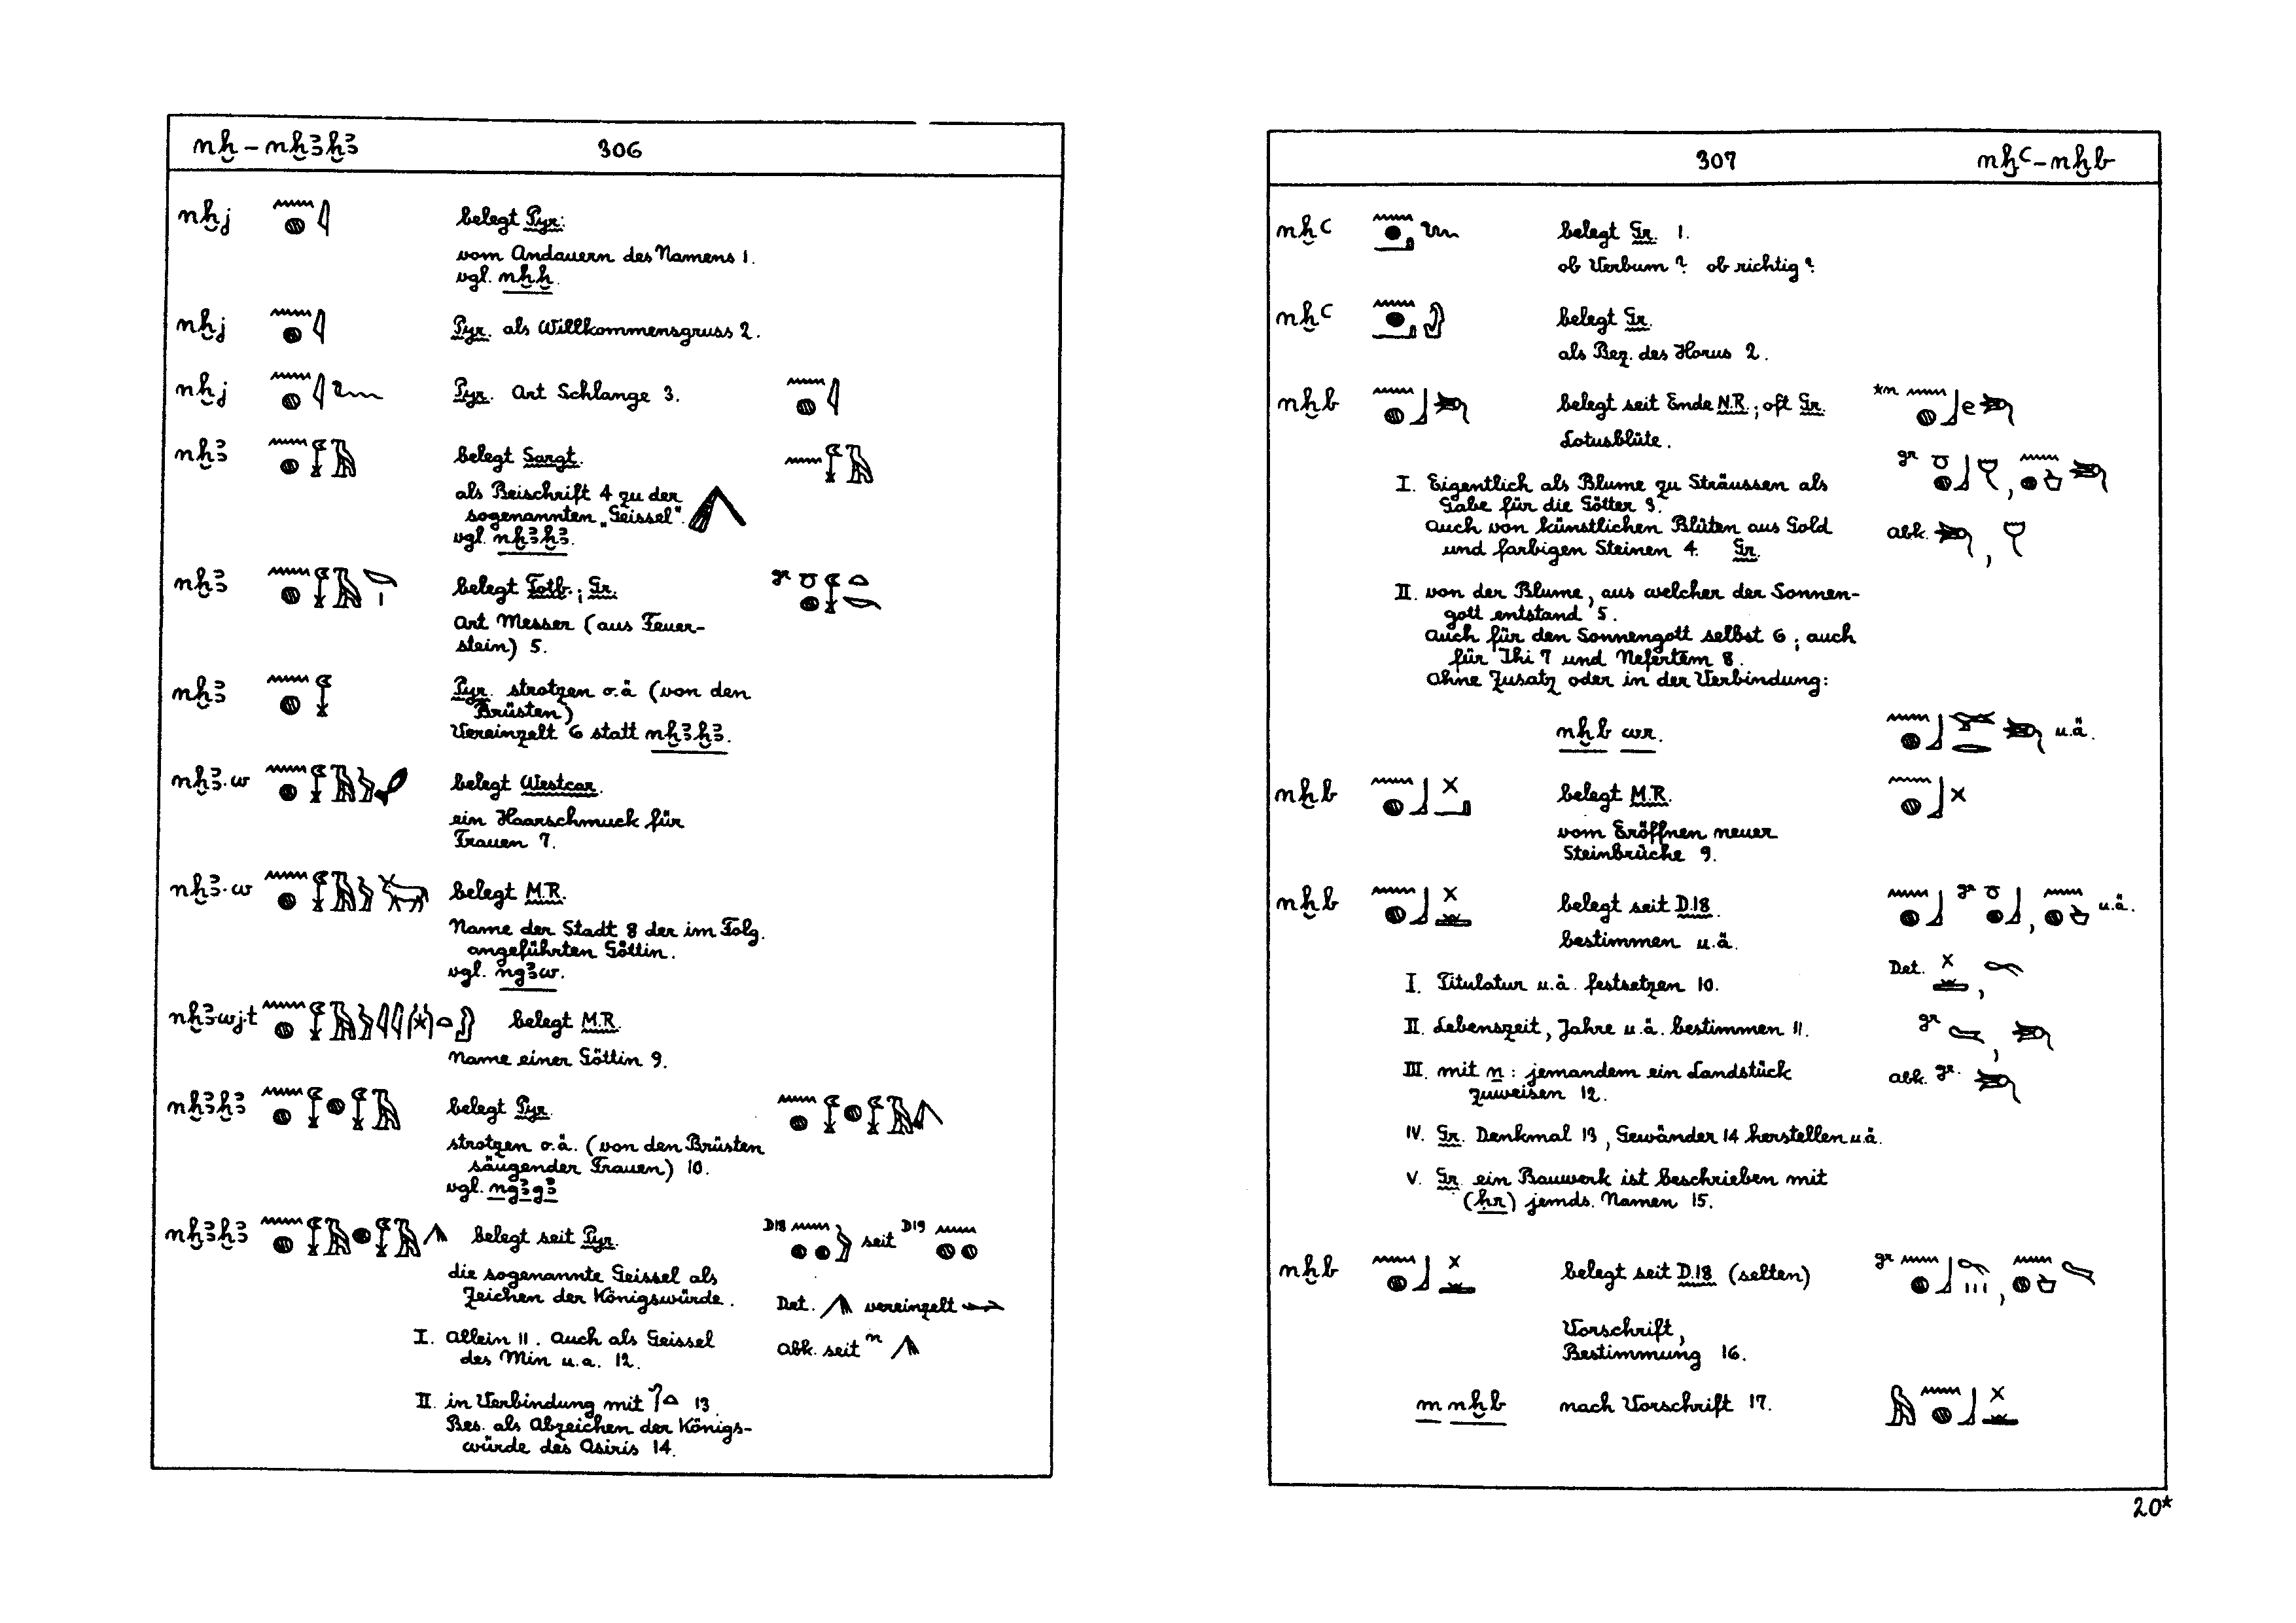 nḫ – nḫꜣḫꜣ 306
nḫj belegt Pyr.
vom Andauern des Namens 1.
vgl. nḫḫ.
nḫj Pyr. als Willkommensgruss 2.
nḫj Pyr. Art Schlange 3.
nḫꜣ belegt Sargt.
als Beischrift 4 zu der
sogenannten „Geissel".
vgl. nḫꜣḫꜣ.
nḫꜣ belegt Totb.; Gr. gr
Art Messer (aus Feuer-
stein) 5.
nḫꜣ Pyr. strotzen o.ä (von den
Brüsten)
Vereinzelt 6 statt nḫꜣḫꜣ.
nḫꜣ·w belegt Westcar.
ein Haarschmuck für
Frauen 7.
nḫꜣ·w belegt M.R.
Name der Stadt 8 der im Folg.
angeführten Göttin.
vgl. ngꜣw.
nḫꜣwj·t belegt M.R.
Name einer Göttin 9.
nḫꜣḫꜣ belegt Pyr.
strotzen o.ä. (von den Brüsten
säugender Frauen) 10.
vgl. ngꜣgꜣ
nḫꜣḫꜣ belegt seit Pyr. D18 seit D19
die sogenannte Geissel als
Zeichen der Königswürde. Det. vereinzelt
I. Allein 11. Auch als Geissel
des Min u.a. 12. Abk. seit n
II. in Verbindung mit 13.
Bes. als Abzeichen der Königs-
würde des Osiris 14.
307 nḫꜥ – nḫb
nḫꜥ belegt Gr. 1.
ob Verbum? ob richtig?
nḫꜥ belegt Gr.
als Bez. des Horus 2.
nḫb belegt seit Ende N.R.; oft Gr. *n e
Lotusblüte. gr ,
I. Eigentlich als Blume zu Sträussen als
Gabe für die Götter 3.
Auch von künstlichen Blüten aus Gold Abk. ,
und farbigen Steinen 4. Gr.
II. von der Blume, aus welcher der Sonnen-
gott entstand 5.
Auch für den Sonnengott selbst 6; auch
für Ihi 7 und Nefertem 8.
Ohne Zusatz oder in der Verbindung:
nḫb wr. u.ä.
nḫb belegt M.R.
vom Eröffnen neuer
Steinbrüche 9.
nḫb belegt seit D.18. gr , u.ä.
bestimmen u.ä.
I. Titulatur u.ä. festsetzen 10. Det. ,
II. Lebenszeit, Jahre u.ä. bestimmen 11. gr ,
III. mit n: jemandem ein Landstück
zuweisen 12. Abk. gr.
IV. Gr. Denkmal 13, Gewänder 14 herstellen u.ä.
V. Gr. ein Bauwerk ist beschrieben mit
(ḥr) jemds. Namen 15.
nḫb belegt seit D.18 (selten) gr ,
Vorschrift,
Bestimmung 16.
m nḫb nach Vorschrift 17.
20*